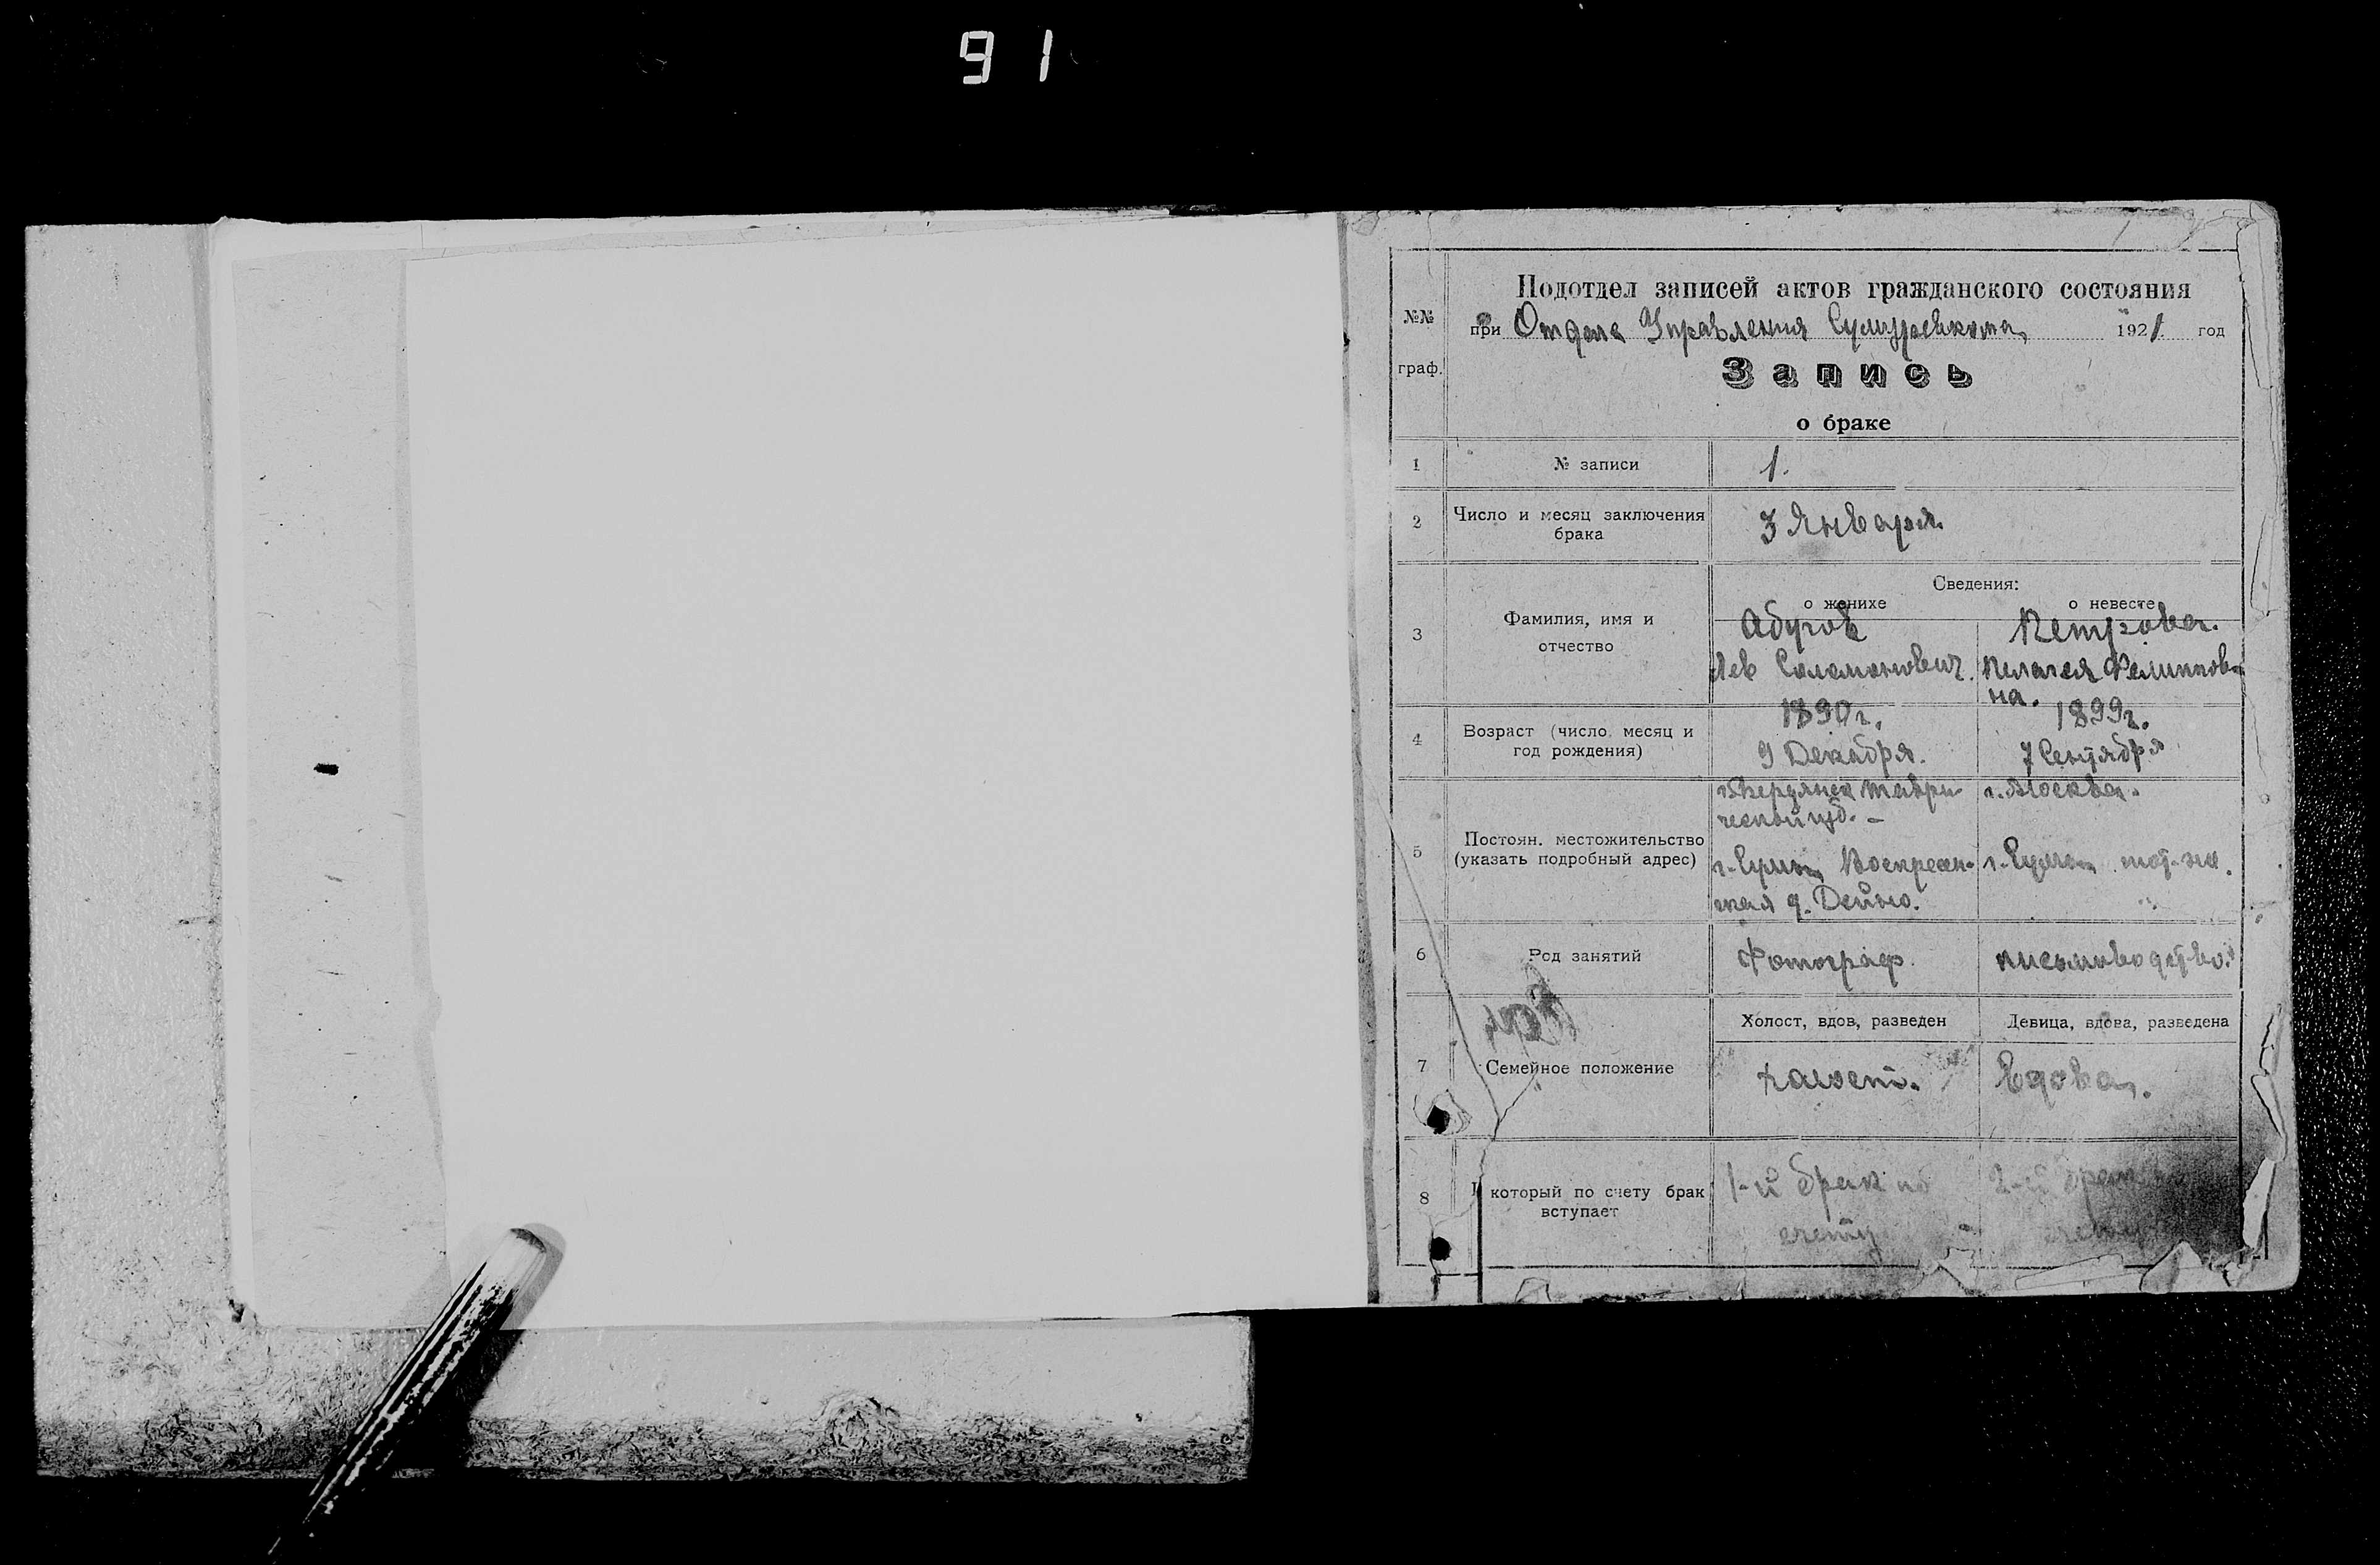 91
Подотдел записей актов гражданского состояния
№№ граф.
при Отделе Управления Сумуревкома 1921. год
Запись
о браке
1 № записи 1.
2 Число и месяц заключения брака 3 Января
Сведения:
о женихе о невесте
3 Фамилия, имя и отчество
Абугов Петрова.
Лев Соломонович. Пелагея Филиппов-
на.
4 Возраст (число, месяц и год рождения)
1890 г. 1899 г.
9 Декабря. 7 Сентября
5 Постоян. местожительство (указать подробный адрес)
г. Бердянск Таври- г. Москва.
ческой губ. -
г. Сумы, Воскресен- г. Сумы тот-же.
ская д.
6 Род занятий Фотограф. письмоводство.
Холост, вдов, разведен Девица, вдова, разведена
7 Семейное положение холост. Вдова.
8 В который по счету брак вступает
1-й брак по 2-й брак
счету счету